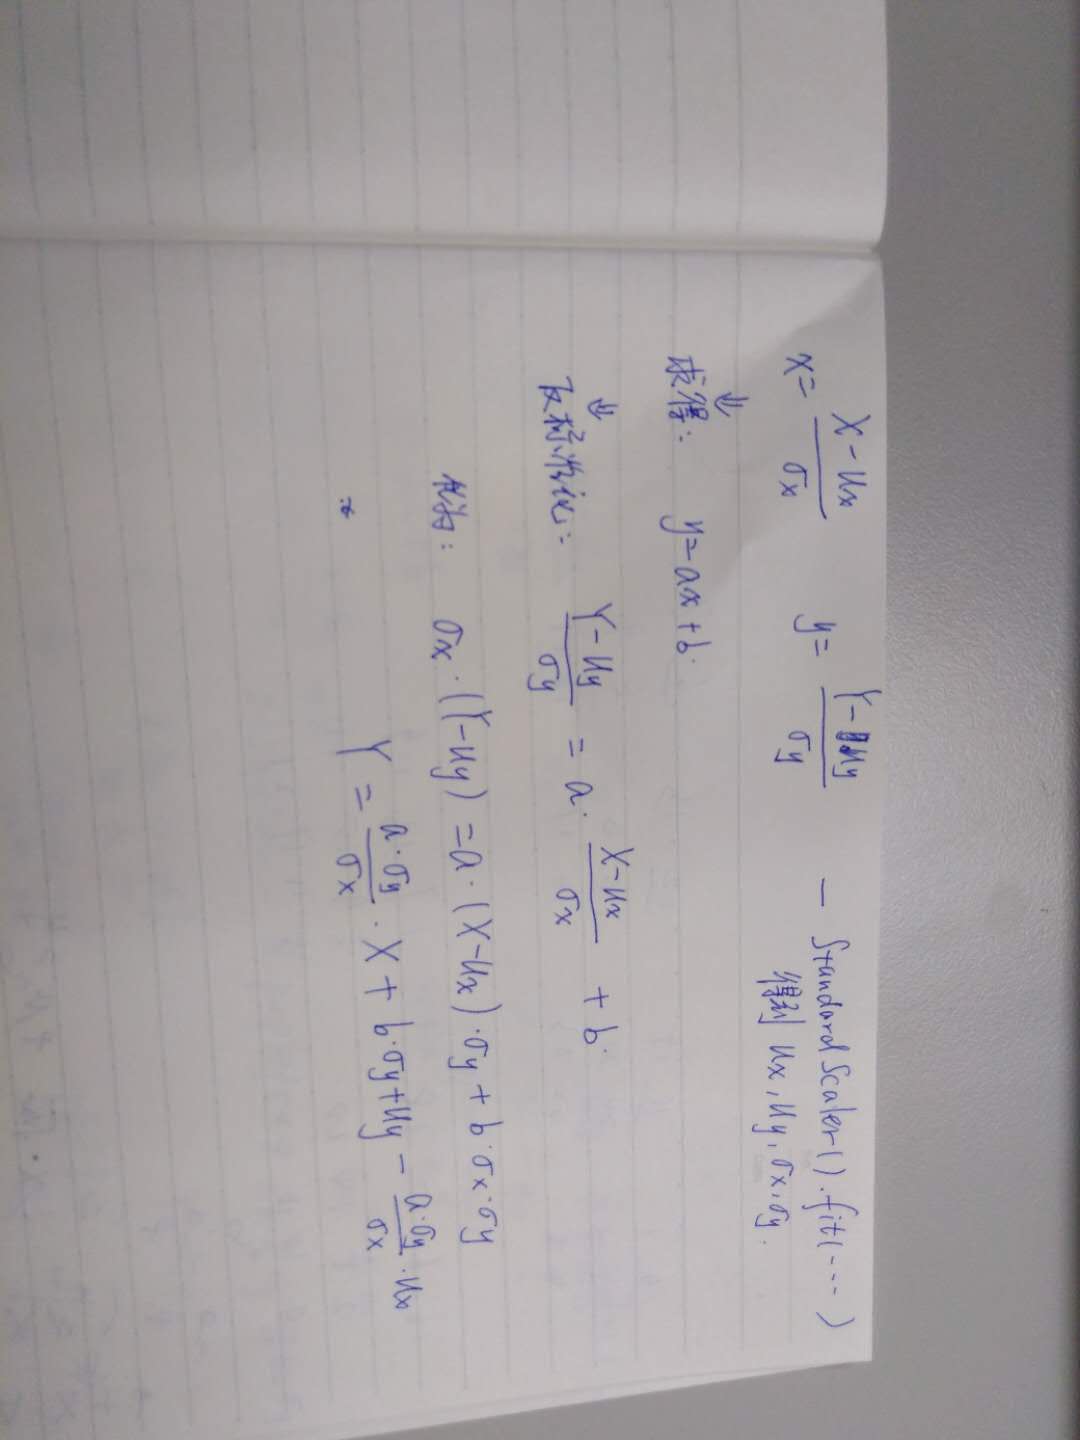 x = (X - ux)/σx    y = (Y - uy)/σy    — StandardScaler().fit(---)
得到 ux, uy, σx, σy.
⇓
求得: y = ax + b.
⇓
反标准化: (Y - uy)/σy = a · (X - ux)/σx + b.
化为: σx · (Y - uy) = a · (X - ux) · σy + b · σx · σy
Y = (a · σy)/σx · X + b · σy + uy - (a · σy)/σx · ux